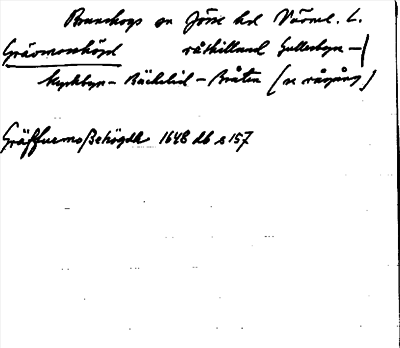 Brunskogs sn Jösse hd Värml. L.
Grävmonhöjd råskillnad Gullerbyn –
Kyrkbyn – Bäckelid – Bråten (se rågång)
Gräffuemoßehögdh 1648 db s 157